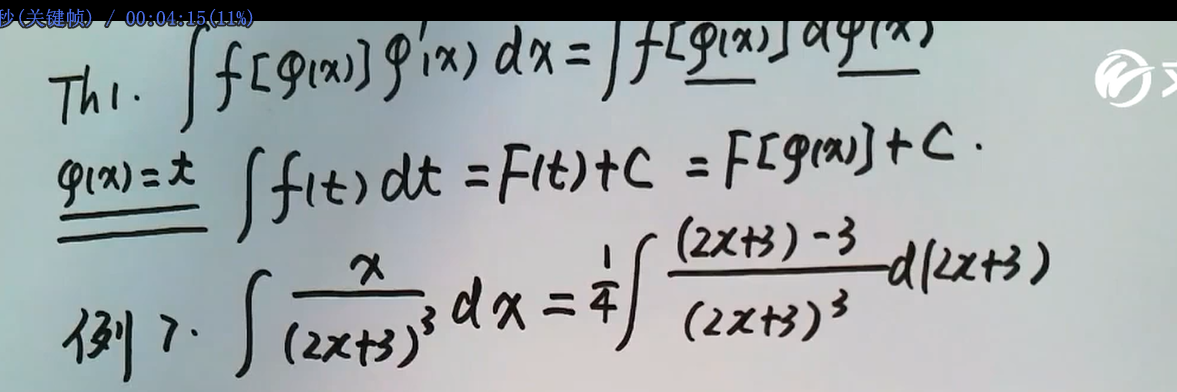 秒(关键帧) / 00:04:15(11%)
Th1. ∫f[φ(x)]φ'(x)dx=∫f[φ(x)]dφ(x)
φ(x)=t ∫f(t)dt=F(t)+C =F[φ(x)]+C.
例7. ∫x/(2x+3)³ dx=1/4∫((2x+3)-3)/(2x+3)³ d(2x+3)